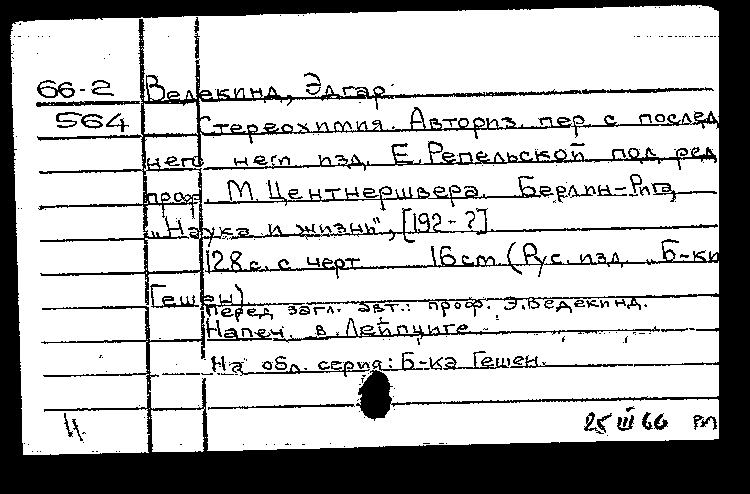 66-2 Ведекинд, Эдгар.
564 Стереохимия. Авториз. пер. с послед
него нем. изд. Е. Репельской под ред.
проф. М. Центнершвера. Берлин-Рига,
„Наука и жизнь", [192-?].
128 с. с черт. 16 cm. (Рус. изд. „Б-ки
Гешен)
Перед загл. авт.: проф. Э. Ведекинд.
Напеч. в Лейпциге.
На обл. серия: Б-ка Гешен.
25 III 66